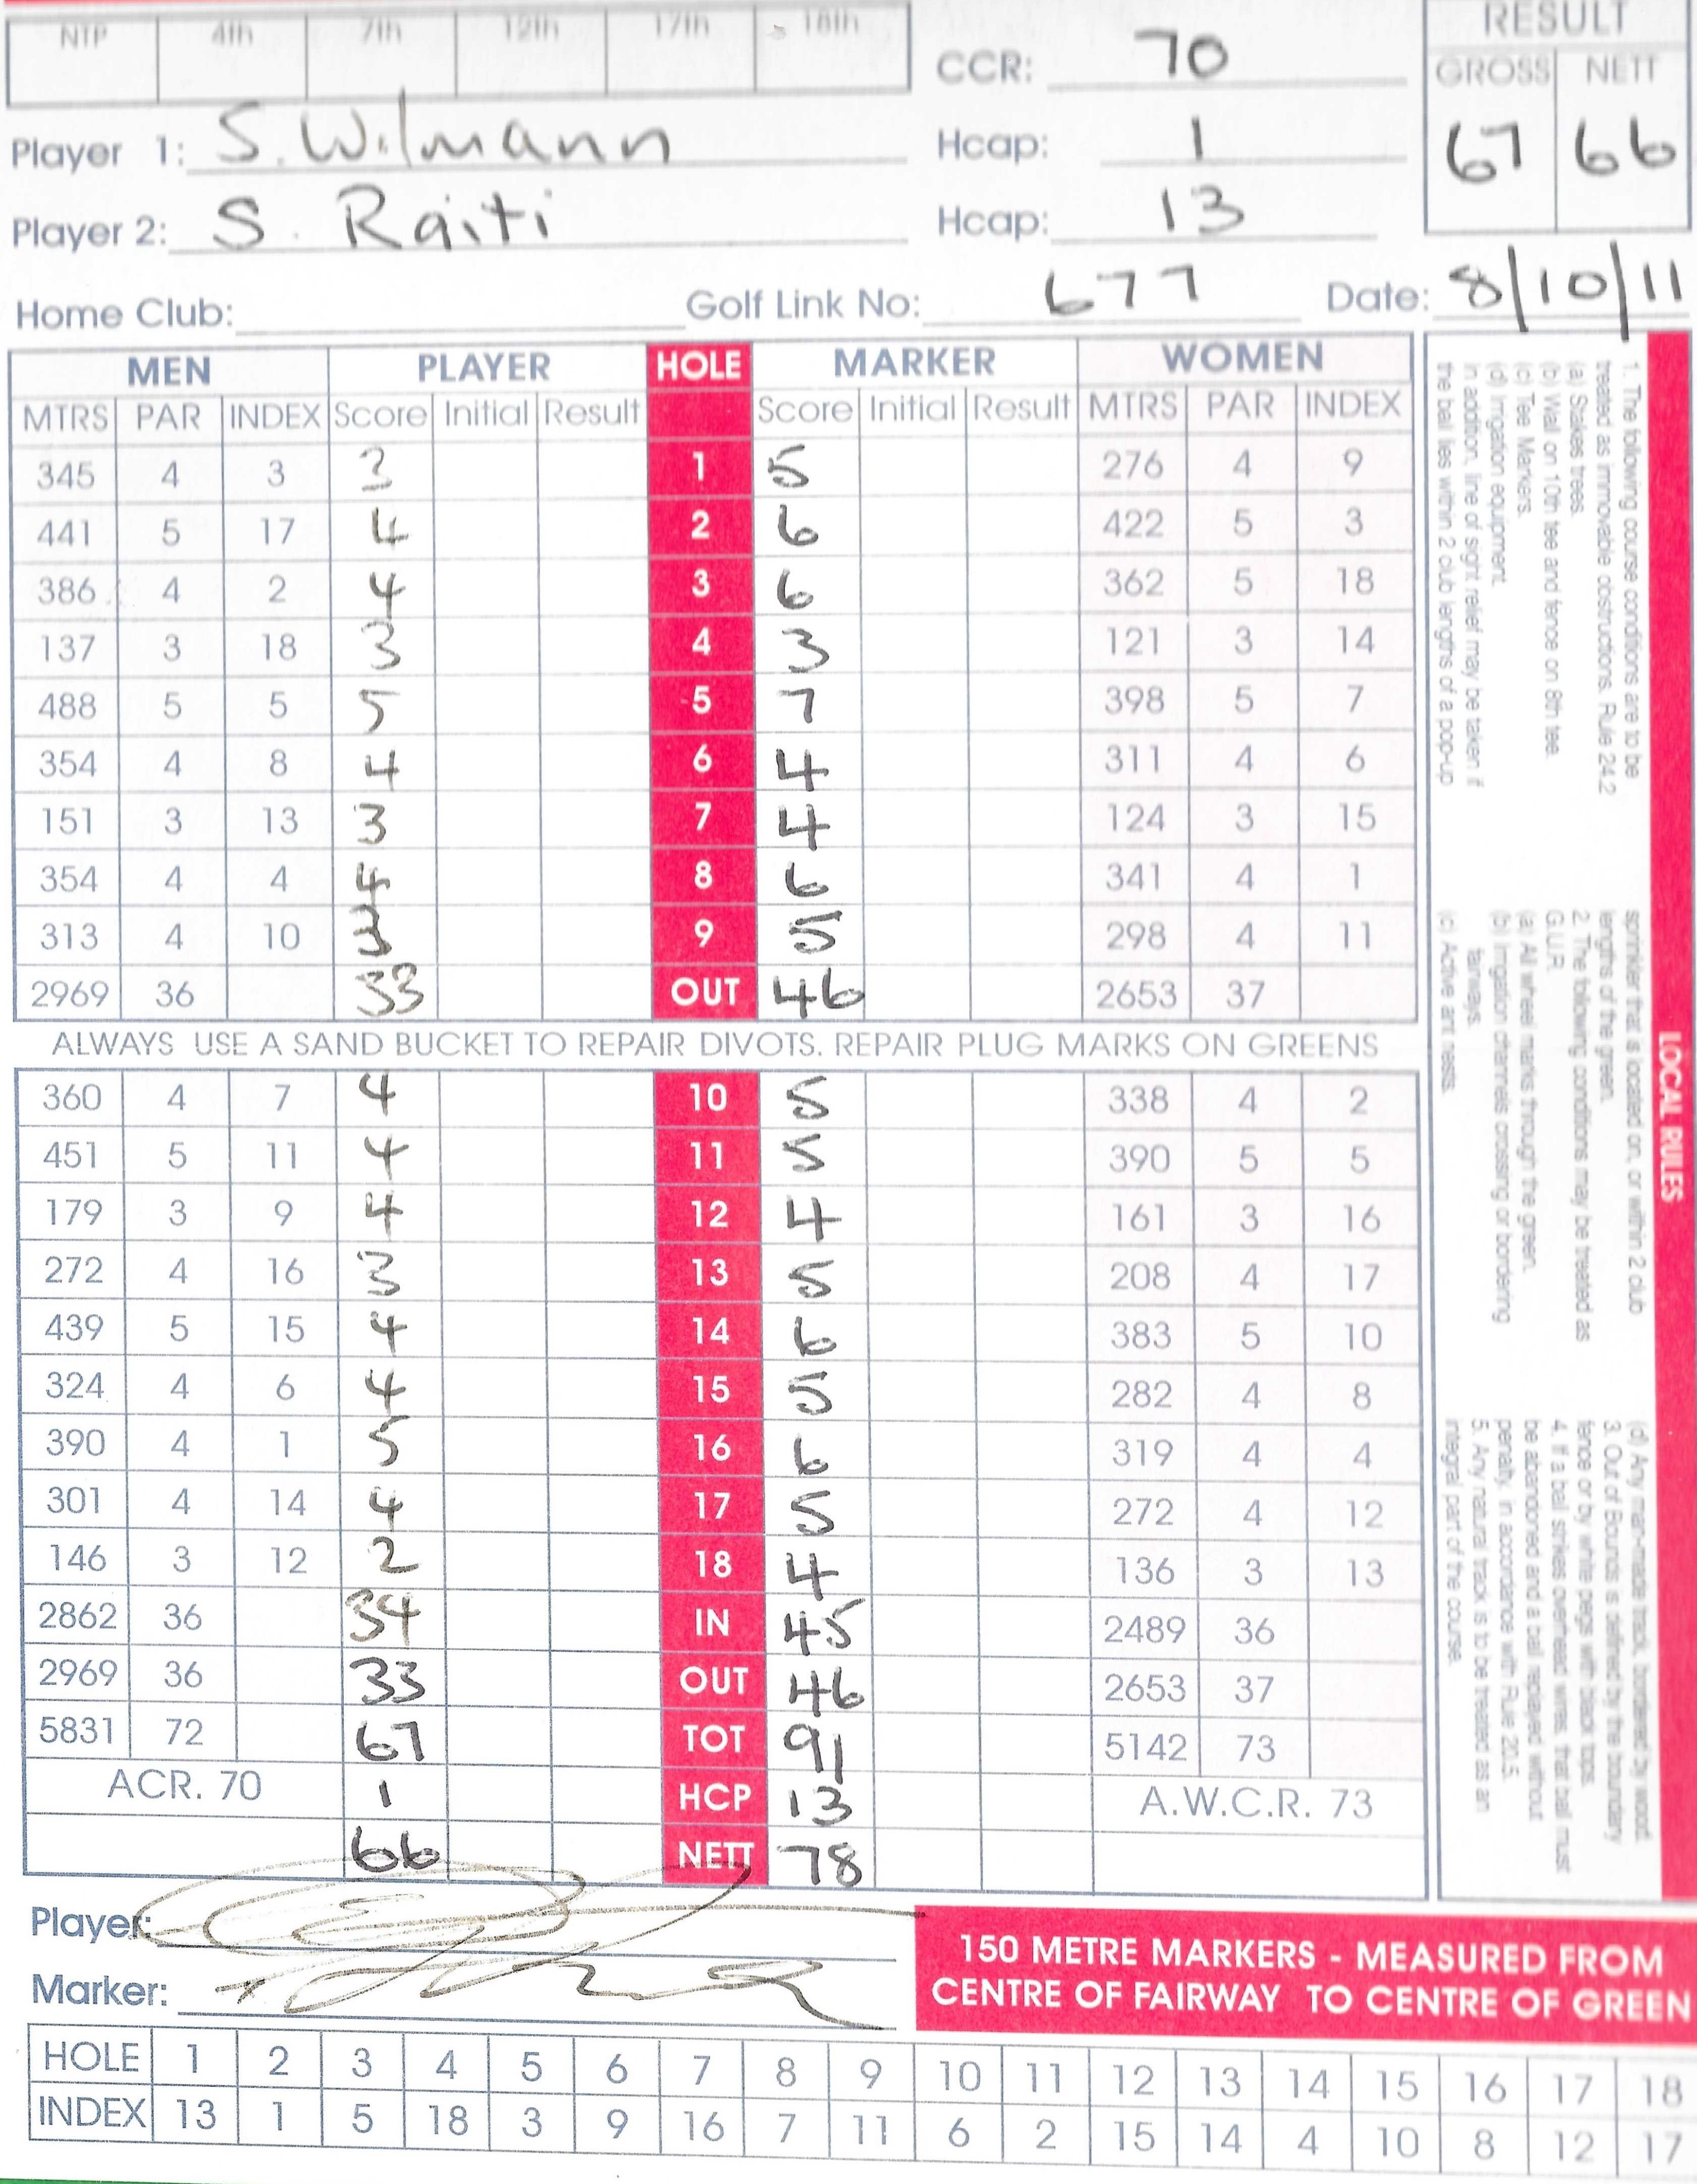 NTP 4th 7th 12th 17th 18th
RESULT
GROSS NETT
67 66
CCR: 70
Player 1: S. Wilmann Hcap: 1
Player 2: S. Raiti Hcap: 13
Home Club: Golf Link No: 677 Date: 8/10/11
MEN PLAYER HOLE MARKER WOMEN
MTRS PAR INDEX Score Initial Result Score Initial Result MTRS PAR INDEX
345 4 3 3 1 5 276 4 9
441 5 17 4 2 6 422 5 3
386 4 2 4 3 6 362 5 18
137 3 18 3 4 3 121 3 14
488 5 5 5 5 7 398 5 7
354 4 8 4 6 4 311 4 6
151 3 13 3 7 4 124 3 15
354 4 4 4 8 6 341 4 1
313 4 10 3 9 5 298 4 11
2969 36 33 OUT 46 2653 37
ALWAYS USE A SAND BUCKET TO REPAIR DIVOTS. REPAIR PLUG MARKS ON GREENS
360 4 7 4 10 5 338 4 2
451 5 11 4 11 5 390 5 5
179 3 9 4 12 4 161 3 16
272 4 16 3 13 5 208 4 17
439 5 15 4 14 6 383 5 10
324 4 6 4 15 5 282 4 8
390 4 1 5 16 6 319 4 4
301 4 14 4 17 5 272 4 12
146 3 12 2 18 4 136 3 13
2862 36 34 IN 45 2489 36
2969 36 33 OUT 46 2653 37
5831 72 67 TOT 91 5142 73
ACR. 70 1 HCP 13 A.W.C.R. 73
66 NETT 78
Player:
Marker:
150 METRE MARKERS - MEASURED FROM
CENTRE OF FAIRWAY TO CENTRE OF GREEN
HOLE 1 2 3 4 5 6 7 8 9 10 11 12 13 14 15 16 17 18
INDEX 13 1 5 18 3 9 16 7 11 6 2 15 14 4 10 8 12 17
LOCAL RULES
1. The following course conditions are to be
treated as immovable obstructions. Rule 24.2
(a) Stakes trees.
(b) Wall on 10th tee and fence on 8th tee.
(c) Tee Markers.
(d) Irrigation equipment.
in addition, line of sight relief may be taken if
the ball lies within 2 club lengths of a pop-up
sprinkler that is located on, or within 2 club
lengths of the green.
2. The following conditions may be treated as
G.U.R.
(a) All wheel marks through the green.
(b) Irrigation channels crossing or bordering
fairways.
(c) Active ant nests.
(d) Any man-made track, bordered by wood.
3. Out of Bounds is defined by the boundary
fence or by white pegs with black tops.
4. If a ball strikes overhead wires, that ball must
be abandoned and a ball replayed without
penalty, in accordance with Rule 20.5.
5. Any natural track is to be treated as an
integral part of the course.